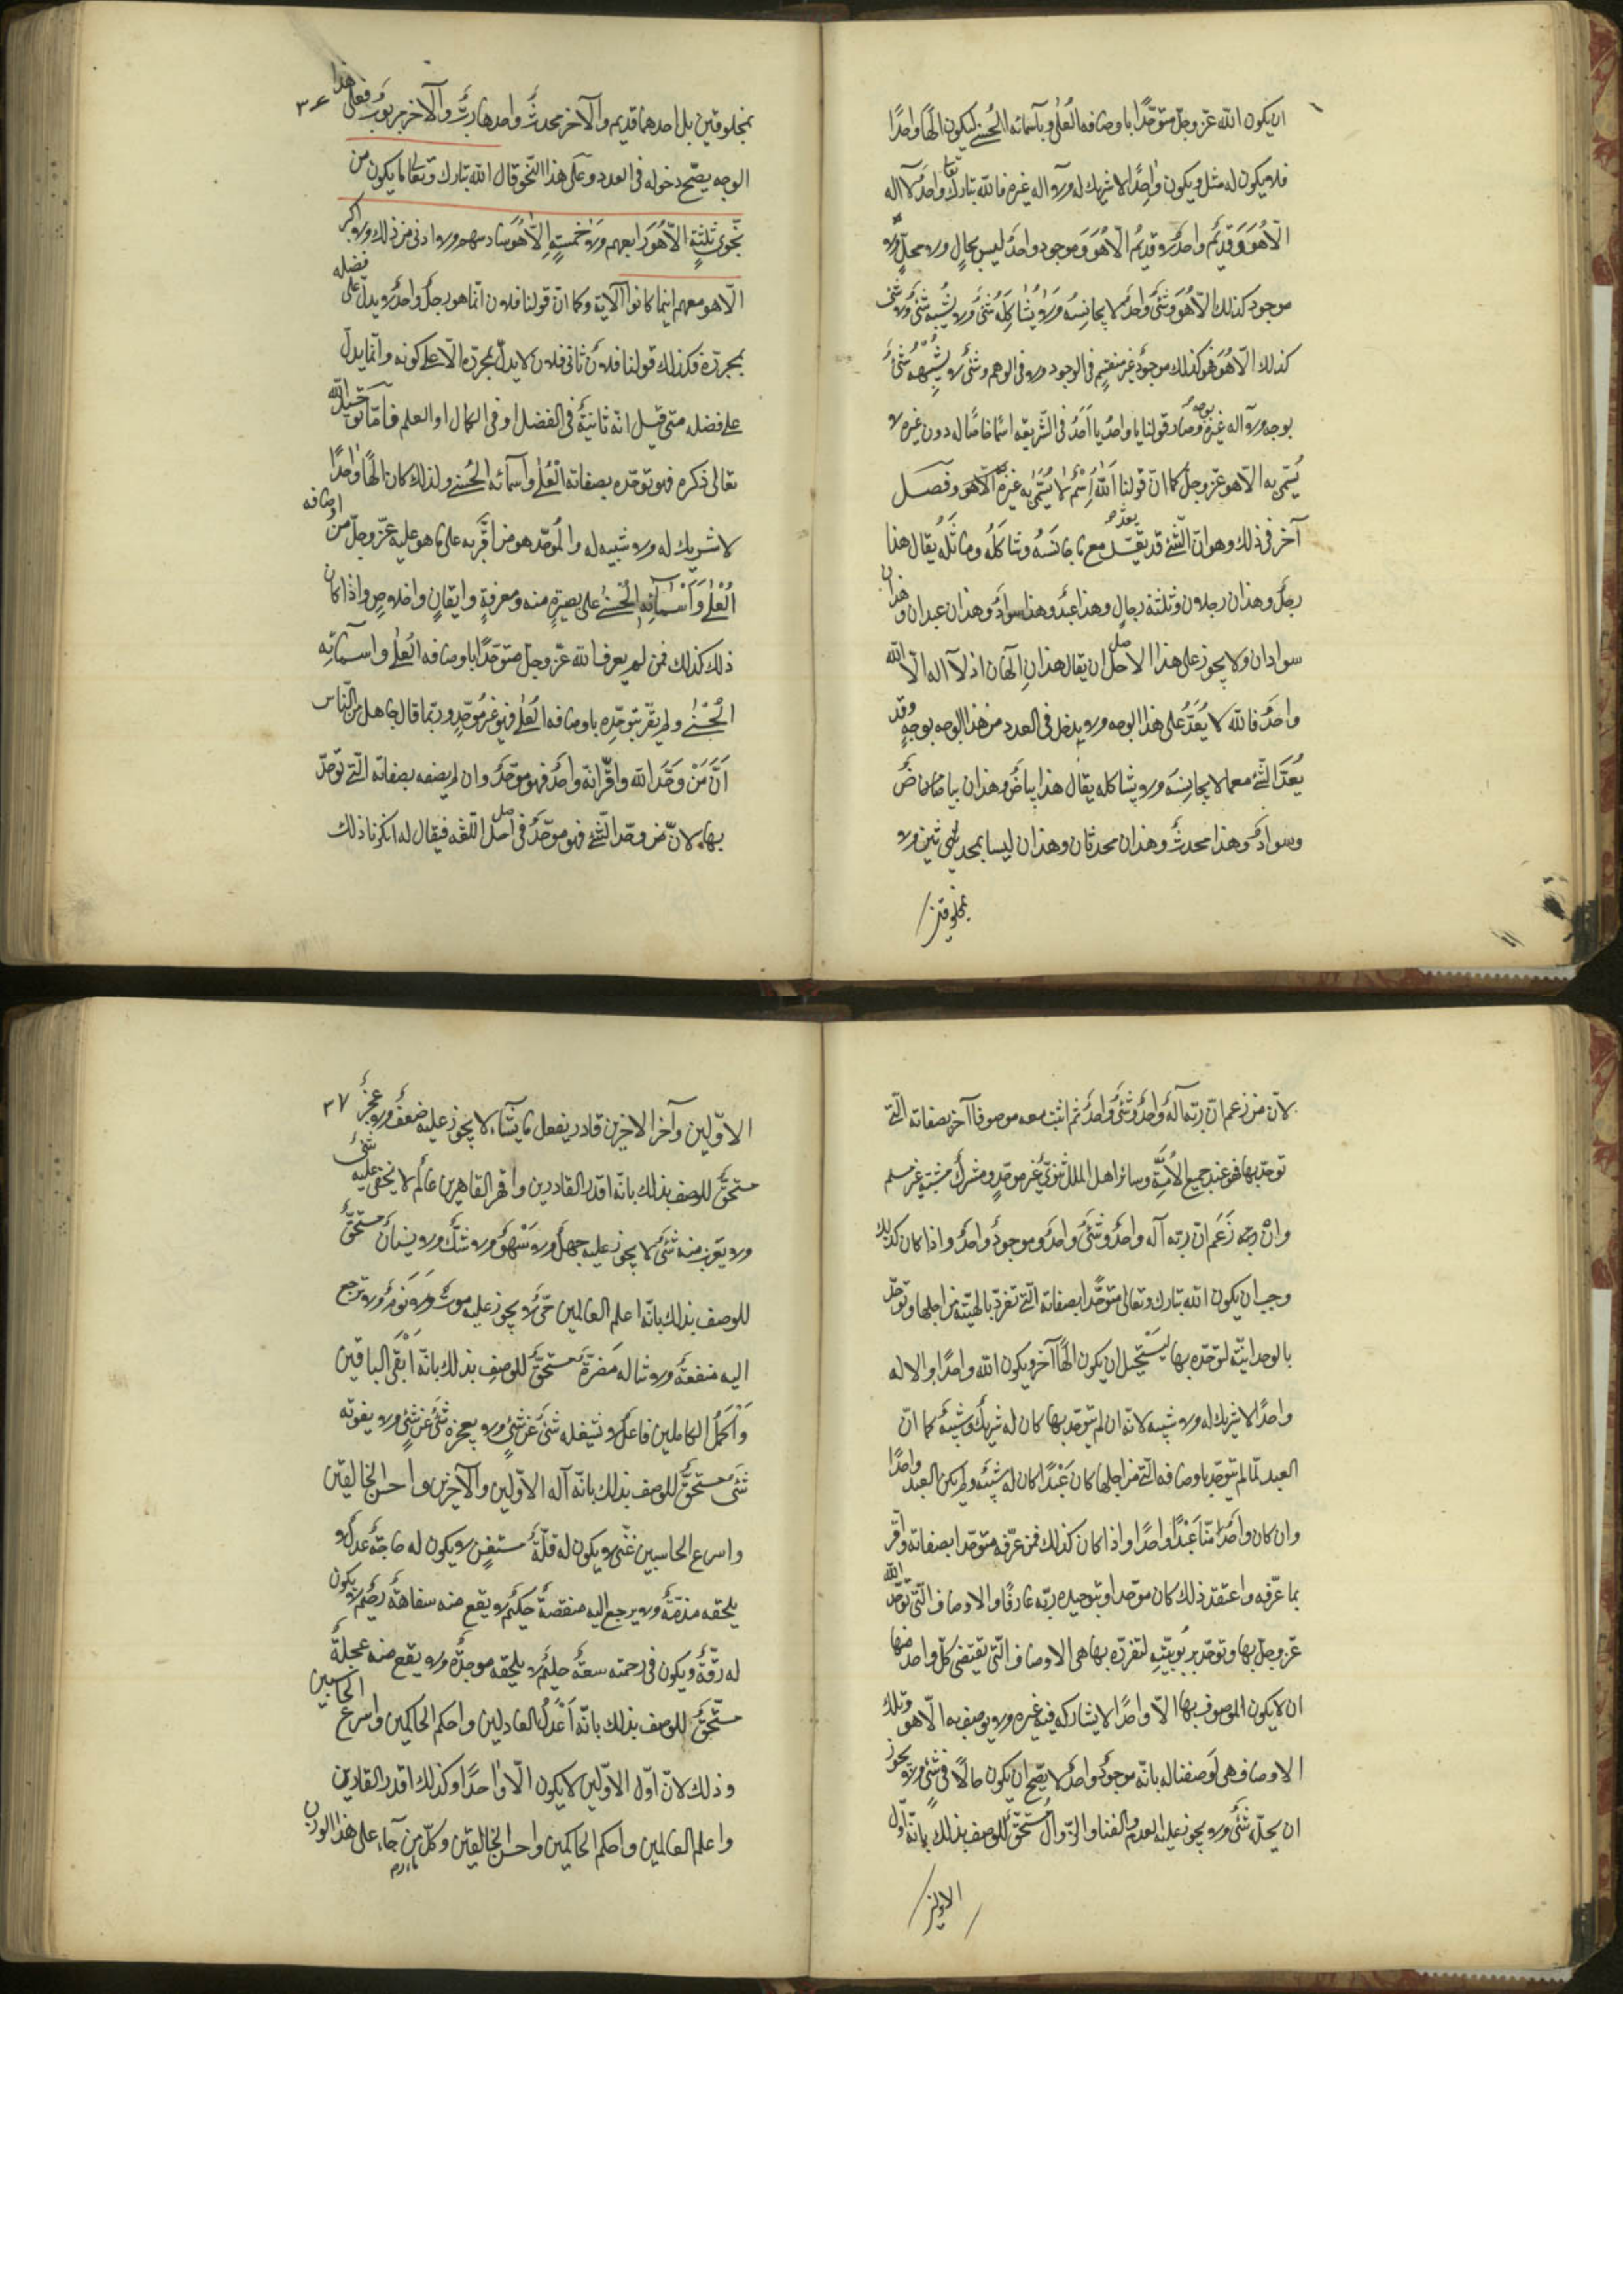 ان يكون الله عزّ وجلّ متوحّدًا باوصافه العُلٰى وبأسمائه الحُسنى ليكون الهًا واحدًا
فلا يكون له مثل ويكون واحدًا لا شريك له ولا آله غيره فالله تبارك وتعا واحدٌ لا آله
الّا هُوَ وَقديمٌ واحدٌ لا قديمُ الّا هُوَ وَموجود واحدٌ ليس بحالٍ ولا محلٍّ ولا
موجود كذلك الّا هُوَ وَشئٌ واحدٌ لا يجانِسُه وَلا يُشاكِلُه شئٌ ولا يُشبِه شئٌ ولا شئ
كذلك الّا هُوَ فهو كذلك موجودٌ غير منقسِم فى الوجود ولا فى الوهم وشئٌ لا يُشْبِهُه شئٌ
بوجه ولآ اله غيره بوجه وصار قولنا يا واحدُ يا اَحَدُ فى الشّريعة اسمًا خاصًّا له دون غيره لا
يُسَمّى به الّا هو عزّ وجلّ كما انّ قولنا اَللّٰهُ اِسْمٌ لا يُسَمّٰى به غيرهُ الّا هو وفصل
آخر فى ذلك وهو انّ الشّئَ قد يعدّ مع ما جانَسَهُ وشاكَلَهُ وماثَلَه يُقال هذا
رجلٌ وهذان رجلان وثلثة رجال وهذا عبدٌ وهذا سوادٌ وهذان عبدان وهذان
سوادان ولا يجوز على هذا الاصل ان يقال هذانِ الٓهان اذ لآ اله الّا الله
واحدٌ فالله لا يُعَدُّ على هذا الوجه ولا يدخل فى العدد من هذا الوجه بوجهٍ وقد
يُعَدّ الشّئُ مع ما لا يجانِسُه ولا يشاكله يقال هذا بياضٌ وهذان بياضان بياضٌ
وسوادٌ وهذا محدثٌ وهذان محدثان وهذان ليسا بمحدثين ولا
بمخلوقين
٣٦
بمخلوقين بل احدهما قديم والآخر محدثٌ واحدهما ربٌّ والآخر مربوبٌ فعلى هذا
الوجه يصّح دخوله فى العدد وعلى هذا النّحو قال الله تبارك وتعالى ما يكون من
نَّجوى ثَلٰثةٍ الّا هُوَ رابعهم وَلا خمسةٍ اِلّا هُوَ سادسهم ولا ادنى من ذلك ولا اكثر
الّا هو معهم اينما كانوا الآية وكما انّ قولنا فلان انّما هو رجلٌ واحدٌ لا يدلّ على فضله
بمجرّده فكذلك قولنا فلانٌ ثانى فلان لا يدلّ بمجرّده الّا على كونه وانّما يدلّ
على فضله متى قيل انّه ثانيهٌ فى الفضل او فى الكمال او العلم فامّا توحيد الله
تعالى ذكره فهو توحّده بصفاته الْعُلٰى وأسمائه الْحُسنى ولذلك كان الهًا واحدًا
لا شريك له ولا شبيه له والمُوحّد هو من اقَرّ به على ما هو عليه عزّ وجلّ من اوصافه
الْعُلٰى وَاَسْمآئِهِ الْحُسنى على بصيرةٍ منه ومعرفةٍ وايقانٍ واخلاصٍ واذا كان
ذلك كذلك فمن لم يعرف الله عزّ وجلّ متوحّدًا باوصافه العُلٰى واسمائِه
الحُسنٰى ولم يقرّ بتوحّده باوصافه العُلٰى فهو غير مُوحّدٍ وربّما قال جاهل من النّاس
اَنّ مَنْ وَحَّدَ الله واقرّ انّه واحدٌ فهو موحّدٌ وان لم يصفه بصفاته الّتى توحّد
بها لانّ من وحّد الشّئَ فهو موحّدٌ فى اصل اللّغة فيقال له انكرنا ذلك
لانّ من زعم انّ ربّه آلهٌ واحدٌ وشئٌ واحدٌ ثم اثبت معه موصوفًا آخر بصفاته الّتى
توحّد بها فهو عند جميع الاُمّةِ وسائر اهل الملل ثنوىّ غير موحّدٍ ومشركٌ مشبّه غير مسلم
وانْ زَعَم انّ ربّه آله واحدٌ وشئٌ واحدٌ وموجودٌ واحدٌ واذا كان كذلك
وجب ان يكون الله تبارك وتعالى متوحّدًا بصفاته الّتى تفرّد بالهيّته من اجلها وتوحّد
بالوحدانيّة لتوحّده بها ليَسْتحيل ان يكون الهًا آخر ويكون الله واحدًا والاله
واحدًا لا شريك له ولا شبيه لانّه ان لم يتوحّد بها كان له شريكٌ وشبيهٌ كما انّ
العبد لمّا لم يتوحّد باوصافه الّتى من اجلها كان عَبْدًا كان له شبيهٌ ولم يكن العبد واحدًا
وان كان واحدًا منّا عَبْدًا واحدًا واذا كان كذلك فمن عرّفه متوحّدا بصفاته واقرّ
بما عرّفه واعتقد ذلك كان موحّدا وبتوحيده ربّه عارفًا والاوصاف الّتى توحّد الله
عزّ وجلّ بها وتوحّد بربوبيّته لتفرّده بها هى الاوصاف الّتى يقتضى كلّ واحد منها
ان لا يكون الموصوف بها الّا واحدًا لا يشاركه فيه غيره ولا يوصف به الّا هو وتلك
الاوصاف هى لَوصفنا له بانّه موجودٌ واحدٌ لا يصّح ان يكون حالًّا فى شئٍ ولا يجوز
ان يحلّه شئٌ ولا يجوز عليه العدم والفنا والزّوال مُستحقٌّ للوصف بذلك بانّه اوّل
الاولين
٣٧
الاوّلين وآخر الآخرين قادر يفعل ما يشآء لا يجوز عليه ضعفٌ ولا عجزٌ
مستحقٌّ للوصف بذلك بانّه اقدر القادرين واقهر القاهرين عالم لا يخفى عليه شئ
ولا يعزب منه شئٌ لا يجوز عليه جهلٌ ولا سَهوٌ ولا شكٌّ ولا نسيانٌ مستحقٌّ
للوصف بذلك بانّه اعلم العالمين حىٌّ لا يجوز عليه موتٌ ولا نَومٌ ولا ترجع
اليه منفعةٌ ولا تناله مَضرّةٌ مستحقٌّ للوصف بذلك بانّه اَبْقَى الباقين
وَاَكْمَلُ الكاملين فاعلٌ لا تشغله شئٌ عن شئٍ ولا يعجزه شئٌ عن شئٍ ولا يفوته
شئٌ مستحقٌّ للوصف بذلك بانّه آله الاوّلين والآخرين واحسن الخالقين
واسرع الحاسبين غنىٌّ لا يكون له قلّةٌ مستغنٍ لا يكون له حاجةٌ عدلٌ لا
يلحقه مذمّةٌ ولا يرجع اليه منقصةٌ حكيمٌ لا يقع منه سفاهةٌ رحيمٌ لا يكون
له رقّةٌ ويكون فى رحمته سعةٌ حليمٌ لا يلحقه موجدةٌ ولا يقع منه عجلةٌ
مستحقٌّ للوصف بذلك بانّه اَعْدلُ العادلين واحكم الحاكمين واسرع الحاسبين
وذلك لانّ اوّل الاوّلين لا يكون الّا واحدًا وكذلك اقدر القادرين
واعلم العالمين واحكم الحاكمين واحسن الخالقين وكلّ من جآء على هذا الوزن